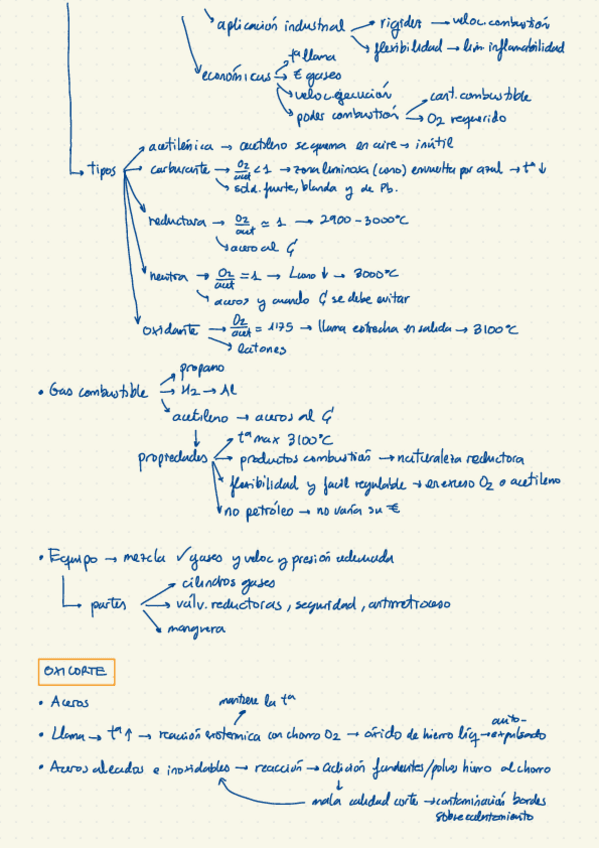 aplicación industrial → rigidez → veloc. combustión
→ flexibilidad → lím inflamabilidad
económicas → tª llama
→ € gases
→ veloc. ejecución
→ poder combustión → cant. combustible
→ O2 requerido
→ tipos → acetilénica → acetileno se quema en aire → inútil
→ carburante → O2/acet < 1 → zona luminosa (cono) envuelta por azul → tª ↓
→ sold. fuerte, blanda y de Pb.
reductora → O2/acet ≃ 1 → 2900 - 3000°C
→ acero al Ç
neutra → O2/acet = 1 → Lumo ↓ → 3000°C
→ aceros y cuando Ç se debe evitar
oxidante → O2/acet = 1'175 → llama estrecha en salida → 3100°C
→ latones
• Gas combustible → propano
→ H2 → Al
→ acetileno → aceros al Ç
↓
propiedades → tª max 3100°C
→ productos combustión → naturaleza reductora
→ flexibilidad y fácil regulable → en exceso O2 o acetileno
→ no petróleo → no varía su €
• Equipo → mezcla ✓ gases y veloc y presión adecuada
→ partes → cilindros gases
→ válv. reductoras, seguridad, antirretroceso
→ manguera
OXICORTE
• Aceros
mantiene la tª
• Llama → tª ↑ → reacción exotérmica con chorro O2 → óxido de hierro líq → auto-expulsado
• Aceros aleados e inoxidables → reacción → adición fundentes/polvos hierro al chorro
↓
mala calidad corte → contaminación bordes
sobrecalentamiento